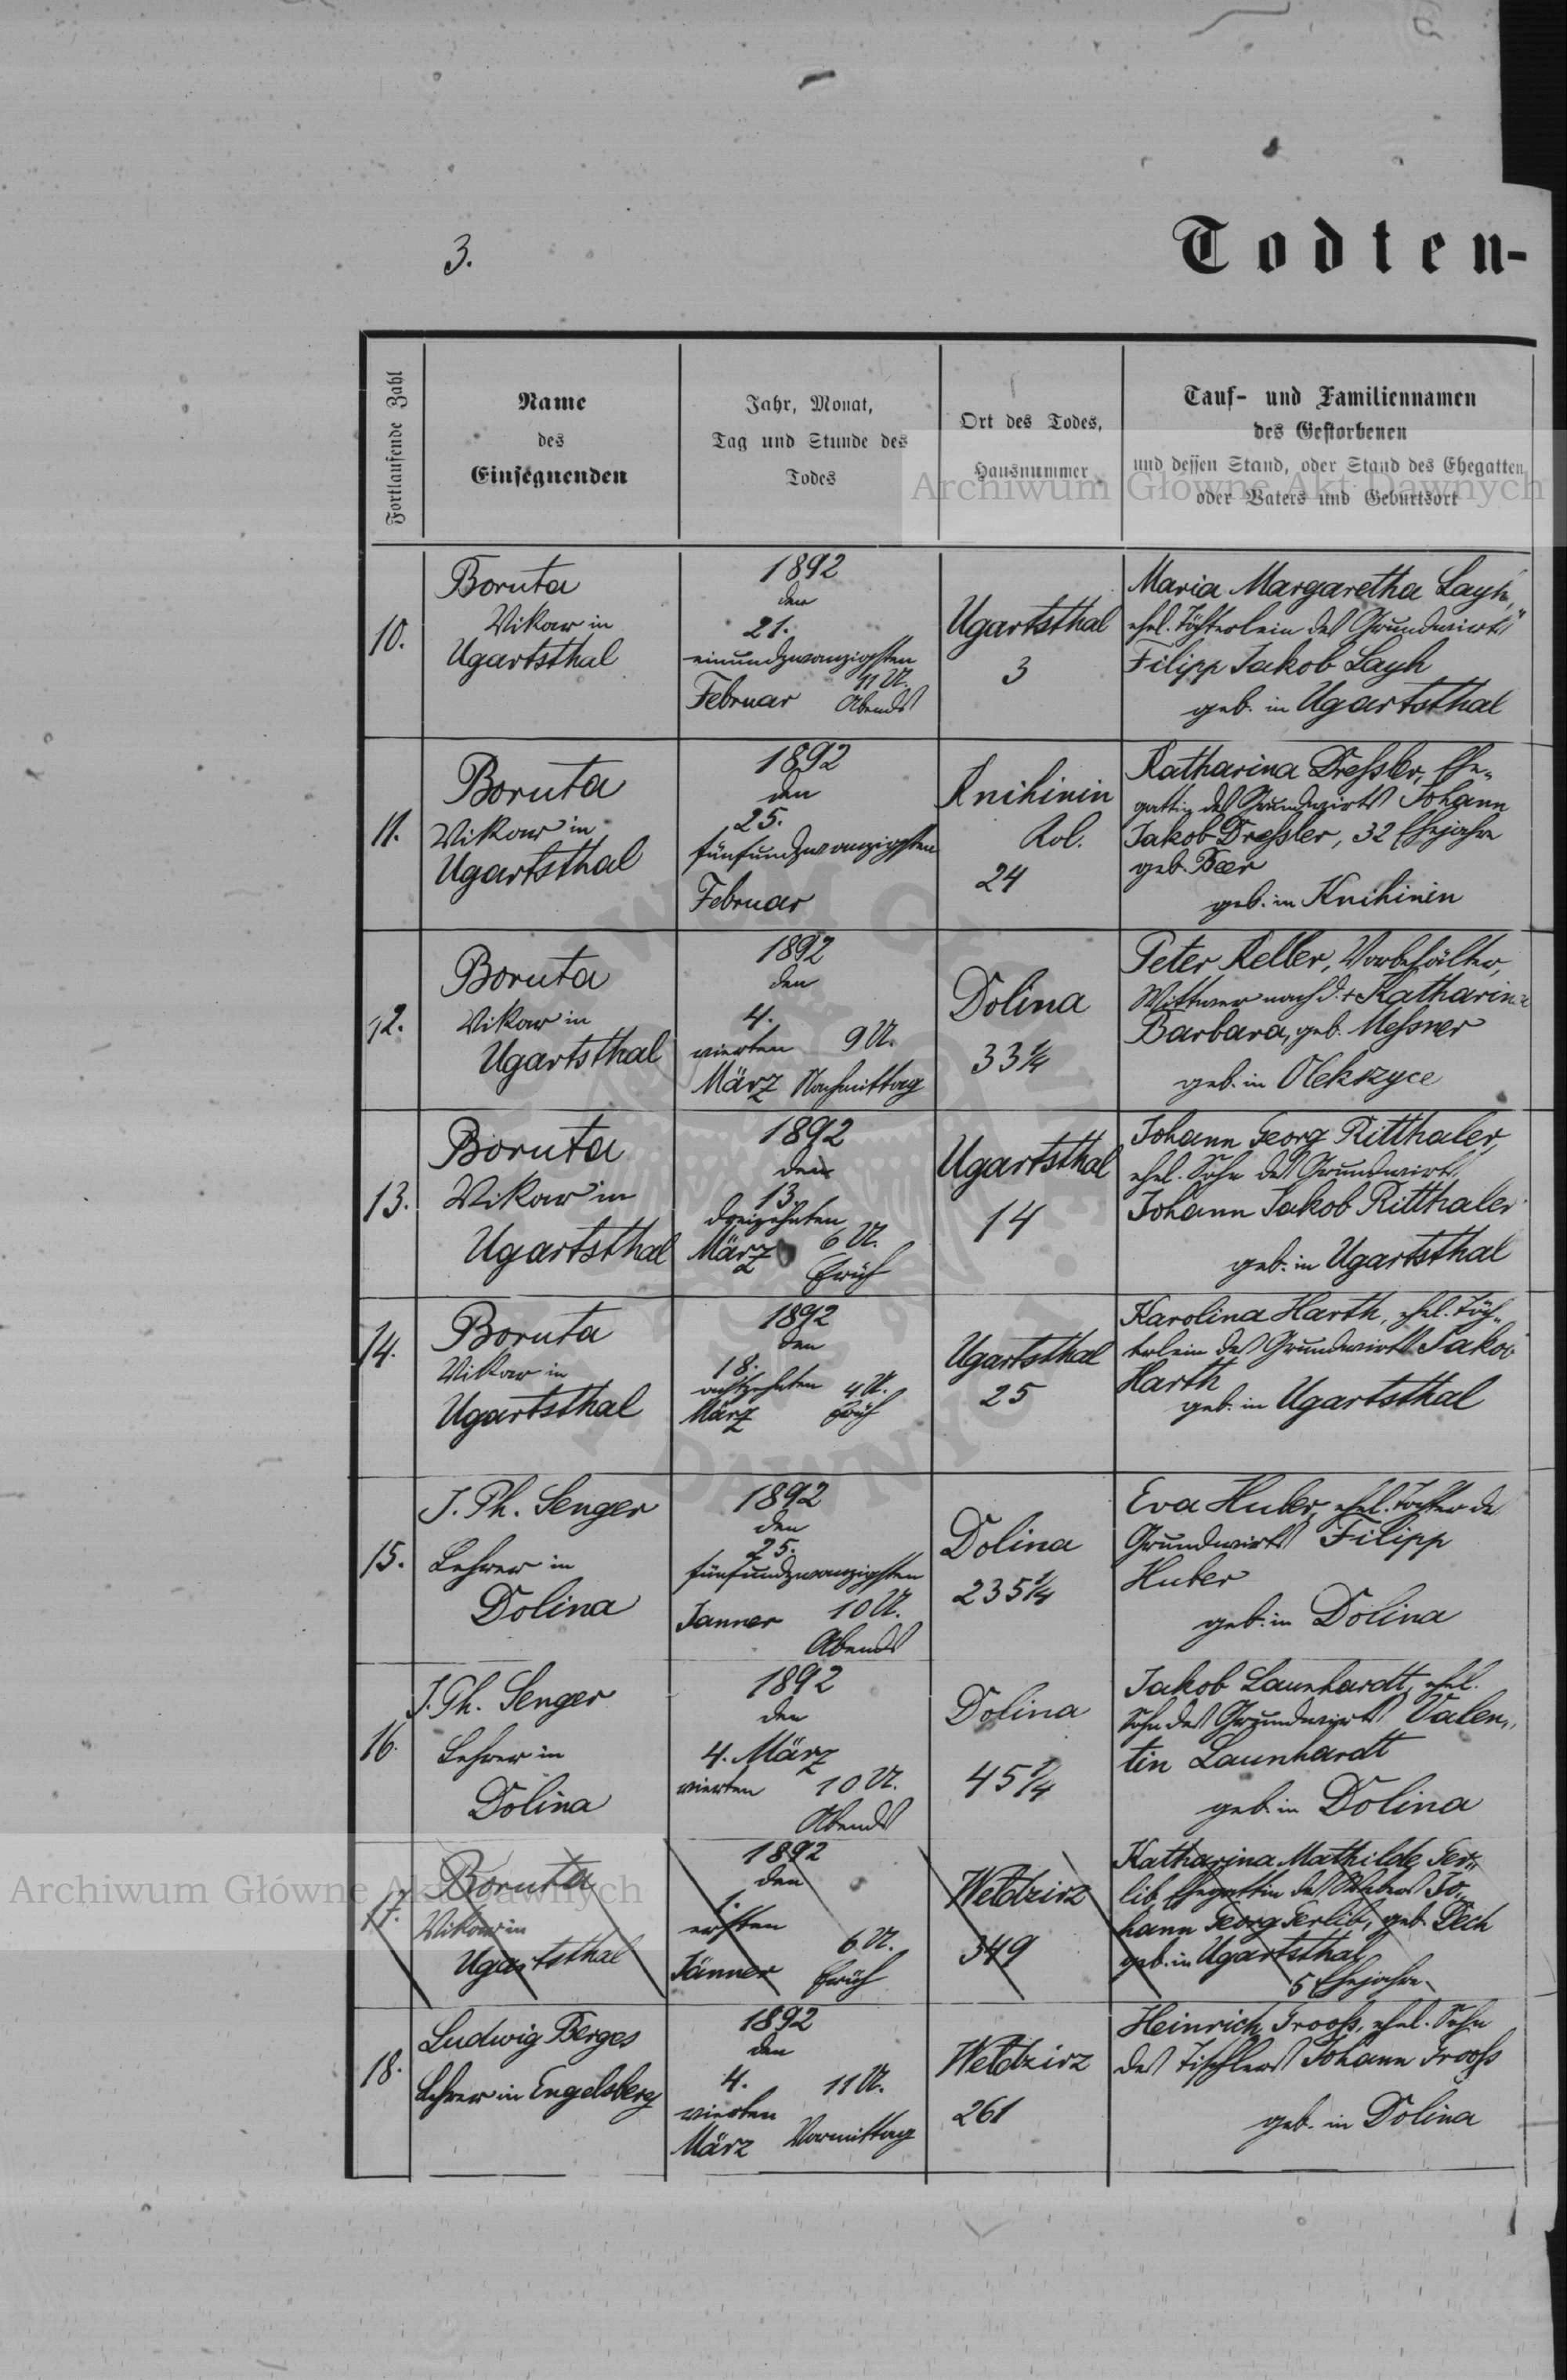 3.
Todten-
Fortlaufende Zahl
Name
des
Einsegnenden
Jahr, Monat,
Tag und Stunde des
Todes
Ort des Todes,
Hausnummer
Tauf- und Familiennamen
des Gestorbenen
und dessen Stand, oder Stand des Ehegatten,
oder Vaters und Geburtsort
Archiwum Główne Akt Dawnych
10.
Boruta
Vikar in
Ugartsthal
1892
den
21.
einundzwanzigsten
11 U.
Februar Abends
Ugartsthal
3
Maria Margaretha Layh,
ehel. Töchterlein des Grundwirts
Filipp Jakob Layh
geb. in Ugartsthal
11.
Boruta
Vikar in
Ugartsthal
1892
den
25.
fünfundzwanzigsten
Februar
Knihinin
Kol.
24
Katharina Dreßler, Ehe-
gattin des Grundwirts Johann
Jakob Dreßler, 32 Ehejahre
geb. Beer
geb. in Knihinin
12.
Boruta
Vikar in
Ugartsthal
1892
den
4.
vierten 9 U.
März Nachmittag
Dolina
33 1/4
Peter Keller, Vorbehälter,
Wittwer nach d. + Katharina
Barbara, geb. Meßner
geb. in Olekszyce
13.
Boruta
Vikar in
Ugartsthal
1892
den
13.
dreizehnten
März 6 U.
Früh
Ugartsthal
14
Johann Georg Ritthaler,
ehel. Sohn des Grundwirts
Johann Jakob Ritthaler
geb. in Ugartsthal
14.
Boruta
Vikar in
Ugartsthal
1892
den
18.
achtzehnten 4 U.
März Früh
Ugartsthal
25
Karolina Harth, ehel. Töch-
terlein des Grundwirts Jakob
Harth
geb. in Ugartsthal
15.
J. Ph. Senger
Lehrer in
Dolina
1892
den
25.
fünfundzwanzigsten
Janner 10 U.
Abends
Dolina
235 1/4
Eva Huber, ehel. Tochter des
Grundwirts Filipp
Huber
geb. in Dolina
16.
J. Ph. Senger
Lehrer in
Dolina
1892
den
4. März
vierten 10 U.
Abends
Dolina
45 1/4
Jakob Launhardt, ehel.
Sohn des Grundwirts Valen-
tin Launhardt
geb. in Dolina
17.
Boruta
Vikar in
Ugartsthal
1892
den
1.
ersten
6 U.
Jänner Früh
Weldzirz
349
Katharina Mathilde Ger-
lib, Ehegattin des Webers Jo-
hann Georg Gerlib, geb. Dech
geb. in Ugartsthal
5 Ehejahre
Archiwum Główne Akt Dawnych
18.
Ludwig Berges
Lehrer in Engelsberg
1892
den
4. 11 U.
vierten
März Vormittag
Weldzirz
261
Heinrich Grooß, ehel. Sohn
des Tischlers Johann Grooß
geb. in Dolina